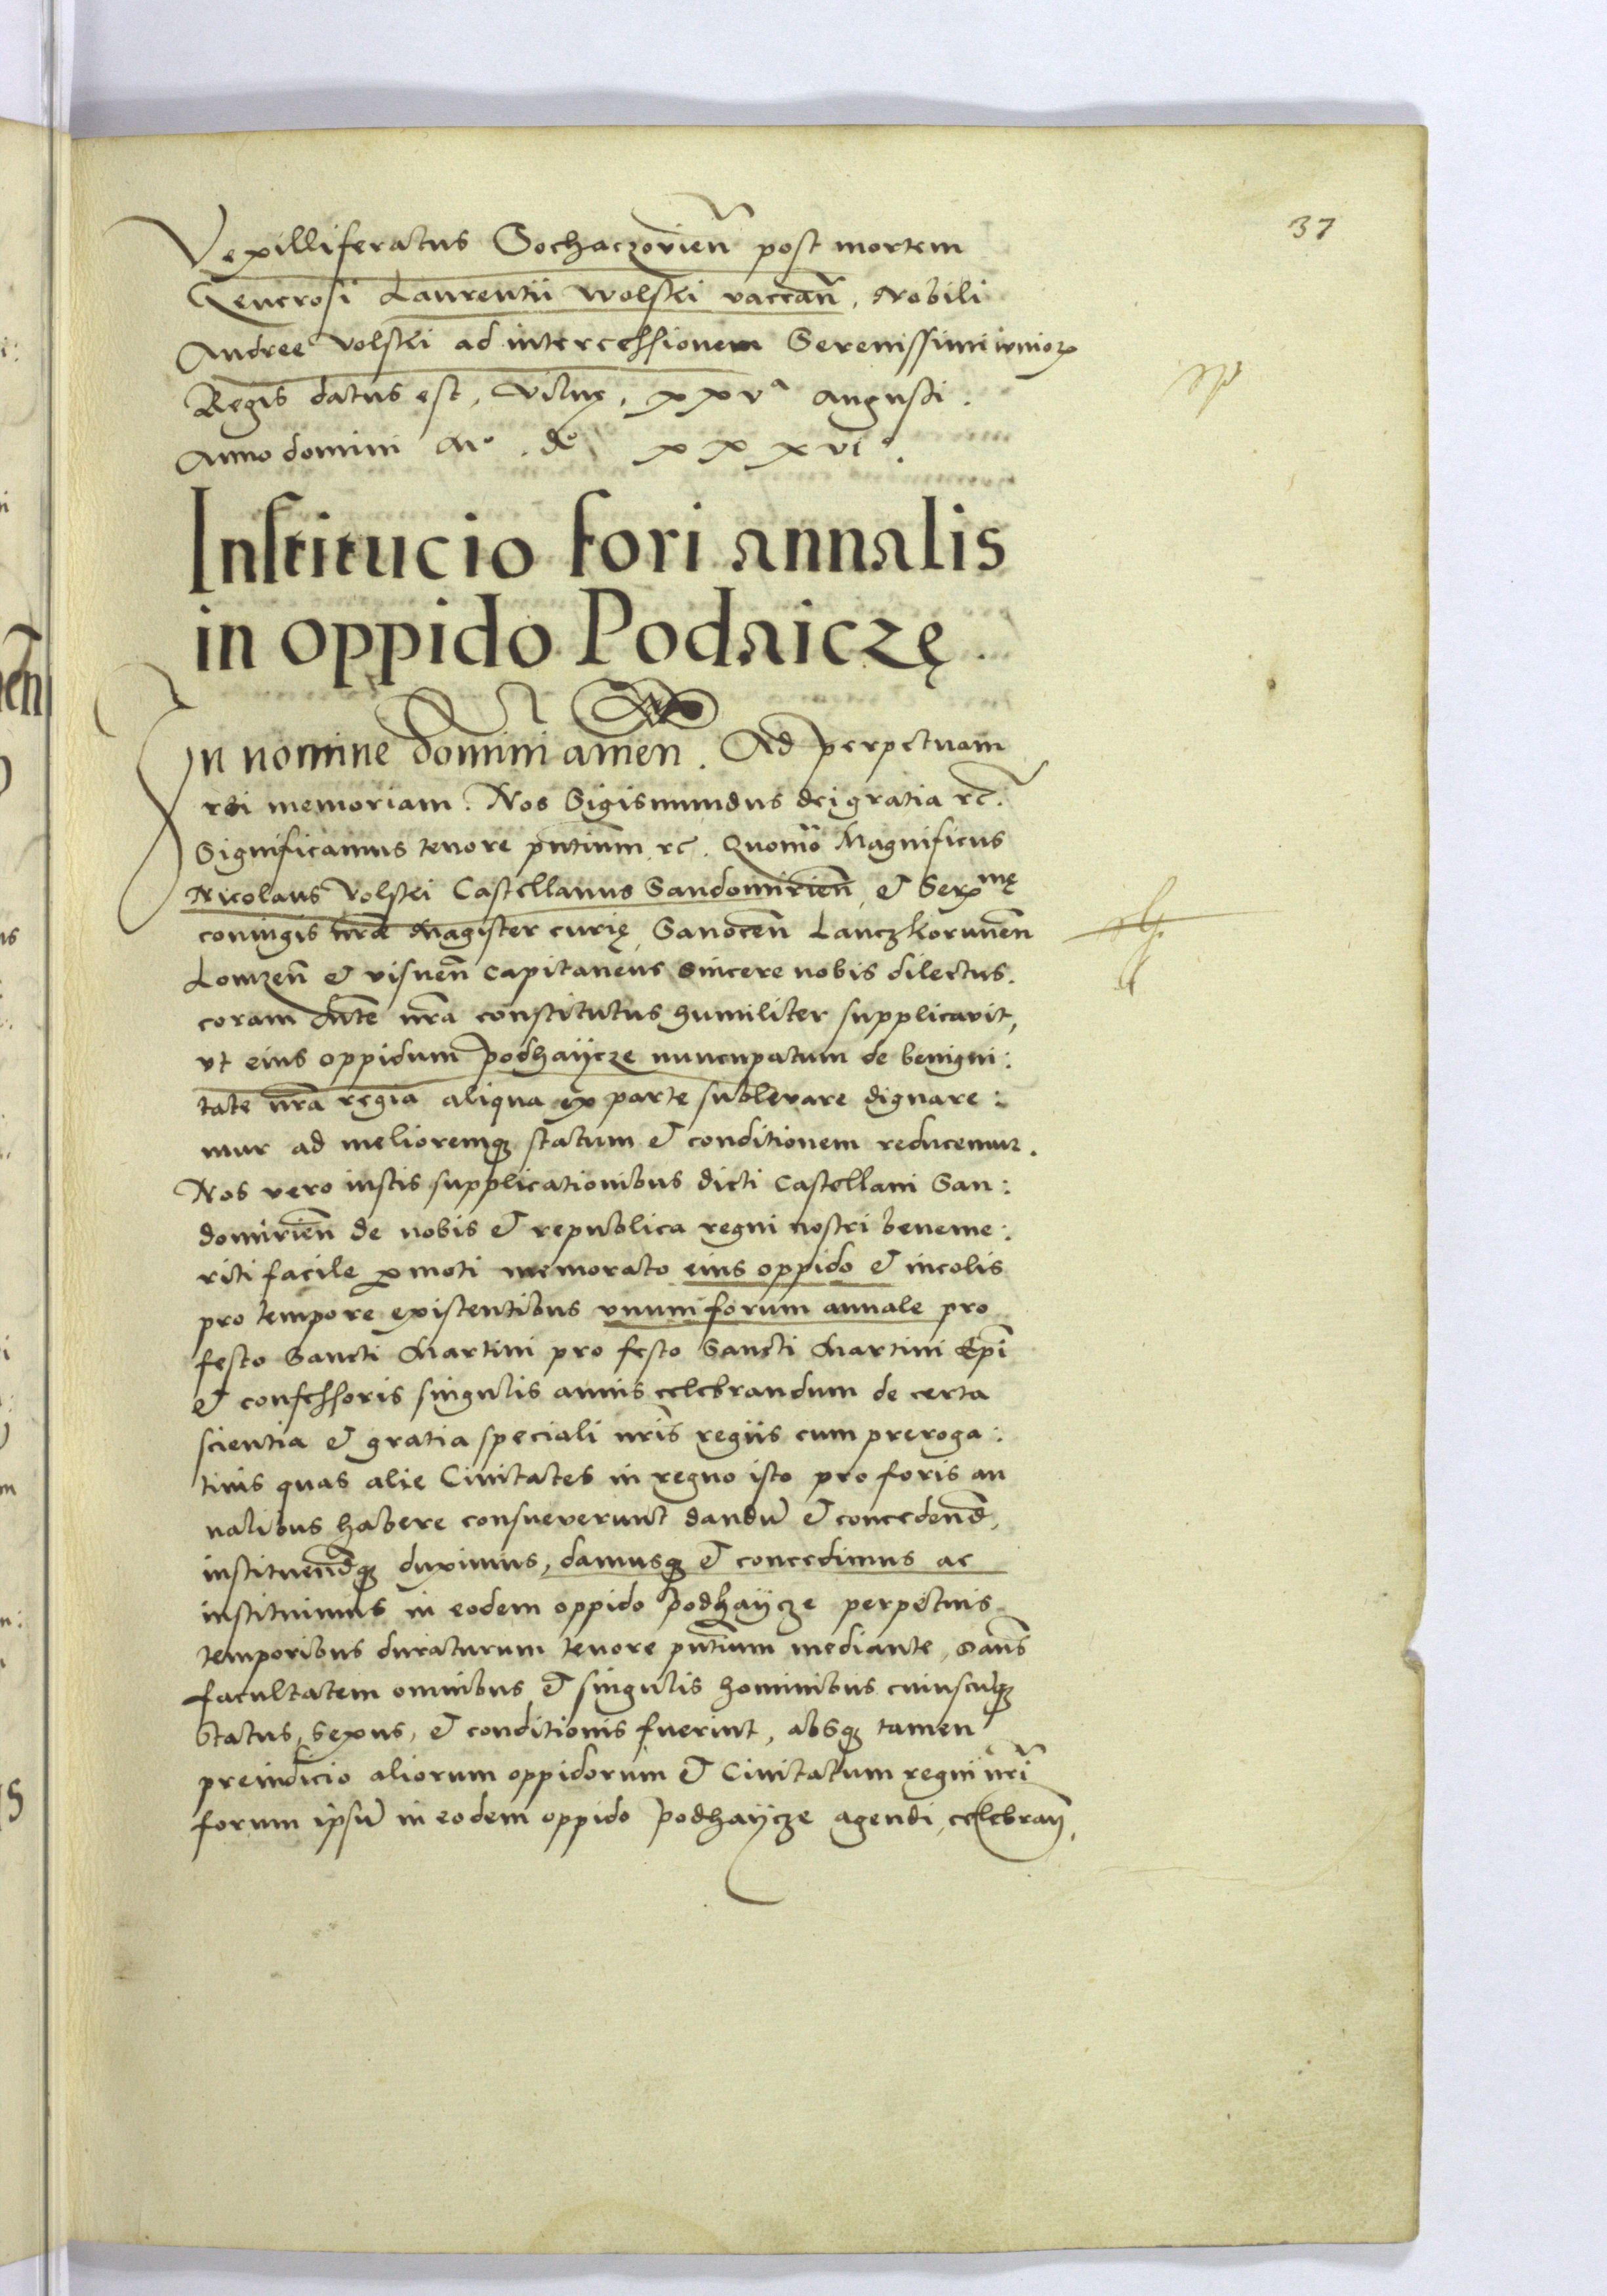 37
Vexilliferatus Sochaczovien̄ post mortem
Generosi Laurentii Wolski vaccan̄, Nobili
Andree Volski ad intercessionem Serenissimi iunioꝝ
Regis datus est, Vilnę, xxvª Augusti.
Anno domini Mº. dº xxxvıº.
Institucio fori annalis
in oppido Podaiczę.
In nomine domini amen. Ad perpetuam
rei memoriam. Nos Sigismundus dei gratia rc̄.
Significamus tenore pn̄tium rc. Quomō Magnificus
Nicolaus Volski Castellanus Sandomirien̄, et Serᵐᵉ
coniugis nr̄ae Magister curię, Sanocen̄ Lanczkorunen̄
Lomzen̄ et visnen̄ Capitaneus sincere nobis dilectus.
coram Mte nr̄a constitutus humiliter supplicavit,
vt eius oppidum Podhaycze nuncupatum de benigni:
tate nr̄a regia aliqua ex parte sublevare dignare:
mur ad melioremqꝫ statum et conditionem reducemur.
Nos vero iustis supplicationibus dicti Castellani San:
domirien̄ de nobis et republica regni nostri beneme:
riti facile ꝑmoti memorato eius oppido et incolis
pro tempore existentibus vnum forum annale pro
festo Sancti Martini pro festo Sancti Martini Epī
et confessoris singulis annis celebrandum de certa
scientia et gratia speciali nr̄is regiis cum preroga:
tiuis quas alię Ciuitates in regno isto pro foris an
nalibus habere consueverunt dandū et concedend̄,
instituend̄qꝫ duximus, damusqꝫ et concedimus ac
instituimus in eodem oppido Podhaycze perpetuis
temporibus duraturum tenore pn̄tium mediante, dan̄s
facultatem omnibus et singulis hominibus cuiuscūqꝫ
status, sexus, et conditionis fuerint, absqꝫ tamen
preiudicio aliorum oppidorum et Ciuitatum regni nr̄i
forum ipsū in eodem oppido Podhaycze agendi, celebran̄,